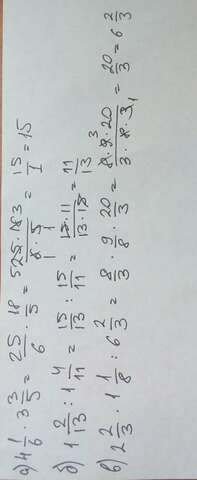 а) 4 1/6 · 3 3/5 = 25/6 · 18/5 = 5 25 · 18 3 / 1 6 · 5 1 = 15/1 = 15
б) 1 2/13 : 1 4/11 = 15/13 : 15/11 = 15 · 11 / 13 · 15 = 11/13
в) 2 2/3 · 1 1/8 : 6 2/3 = 8/3 · 9/8 · 20/3 = 8 · 9 3 · 20 / 3 · 8 · 3 1 = 20/3 = 6 2/3